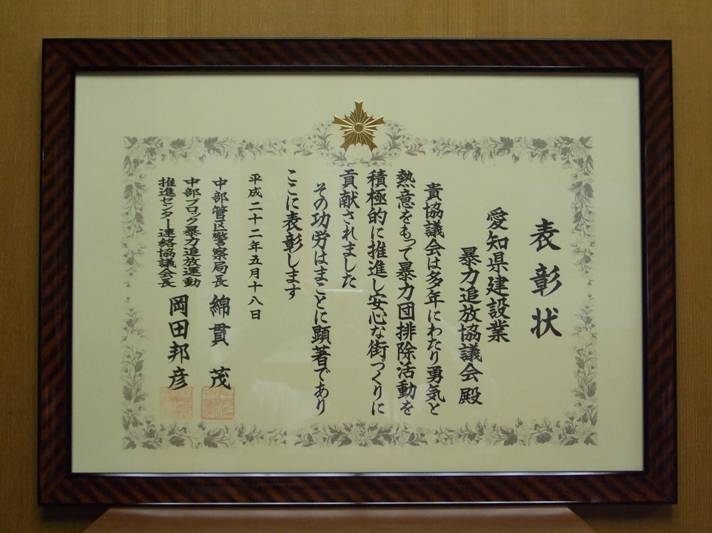 表彰状
愛知県建設業
暴力追放協議会殿
貴協議会は多年にわたり勇気と
熱意をもって暴力団排除活動を
積極的に推進し安心な街づくりに
貢献されました
その功労はまことに顕著であり
ここに表彰します
平成二十二年五月十八日
中部管区警察局長 綿貫茂
中部ブロック暴力追放運動
推進センター連絡協議会長 岡田邦彦